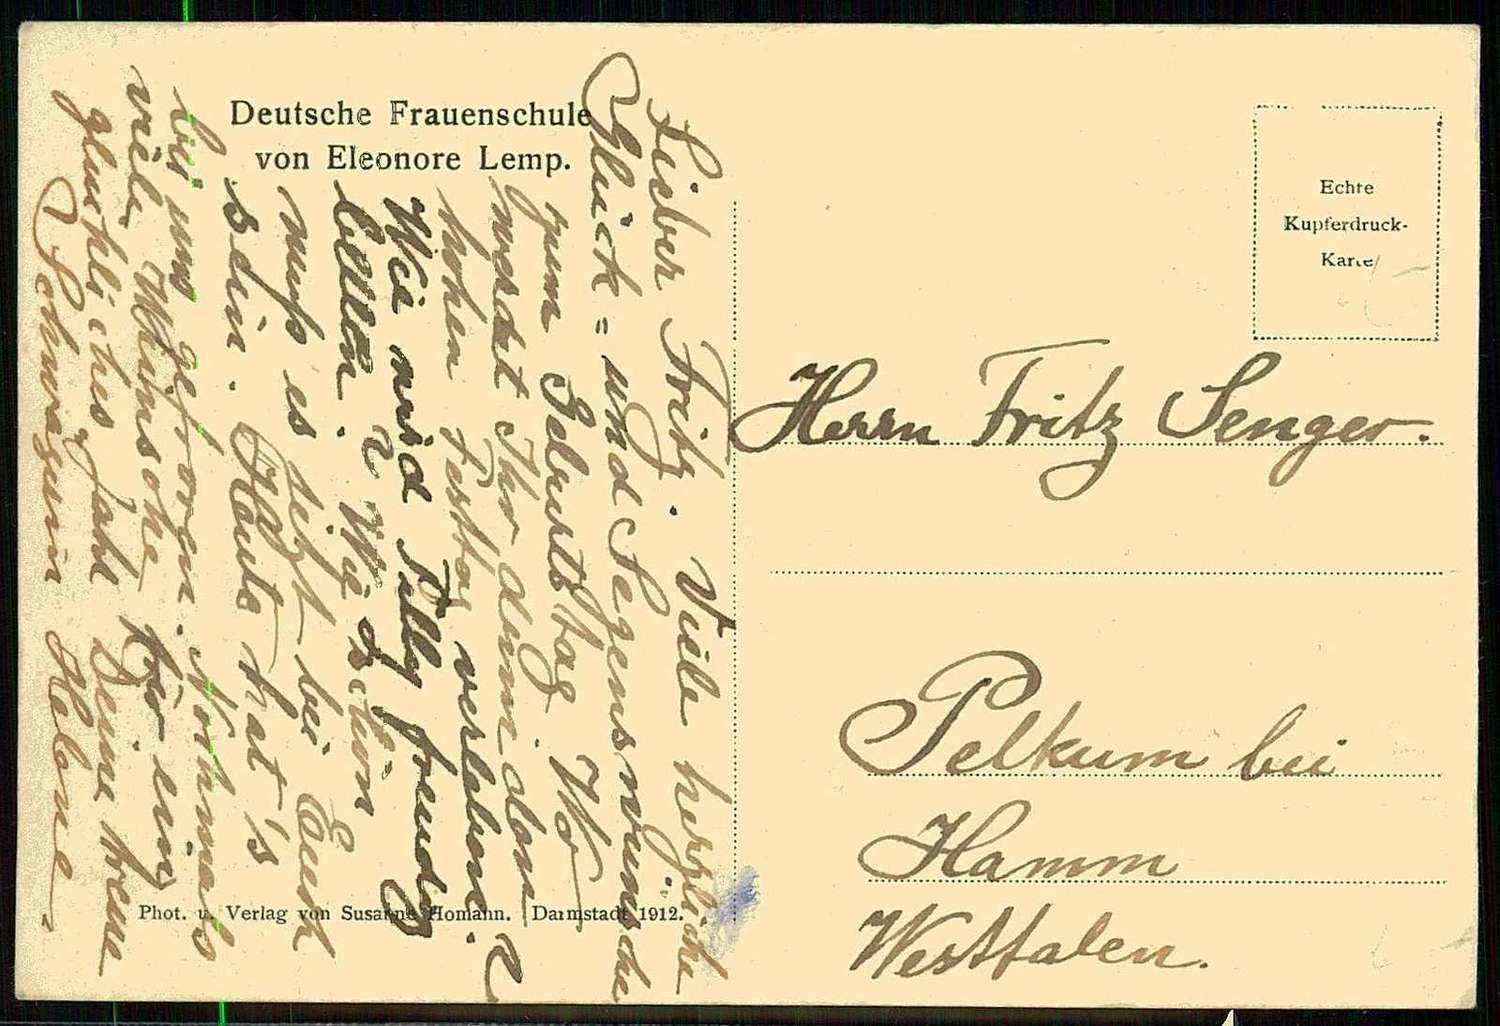 Deutsche Frauenschule
von Eleonore Lemp.
Lieber Fritz. Viele herzliche
Glück= und Segenswünsche
zum Geburtstag. Wo
werdet Ihr denn den
hohen Festtag verleben?
Wie wird Tilly freudig
beben! Wie schön
muß es jetzt bei Euch
sein. Heute hat's
bei uns gefroren. Nochmals
viele Wünsche für ein
glückliches Jahr Deine treue
Schwägerin Helene
Phot. u. Verlag von Susanne Homann. Darmstadt 1912.
Echte
Kupferdruck-
Karte
Herrn Fritz Senger.
Pelkum bei
Hamm
Westfalen.